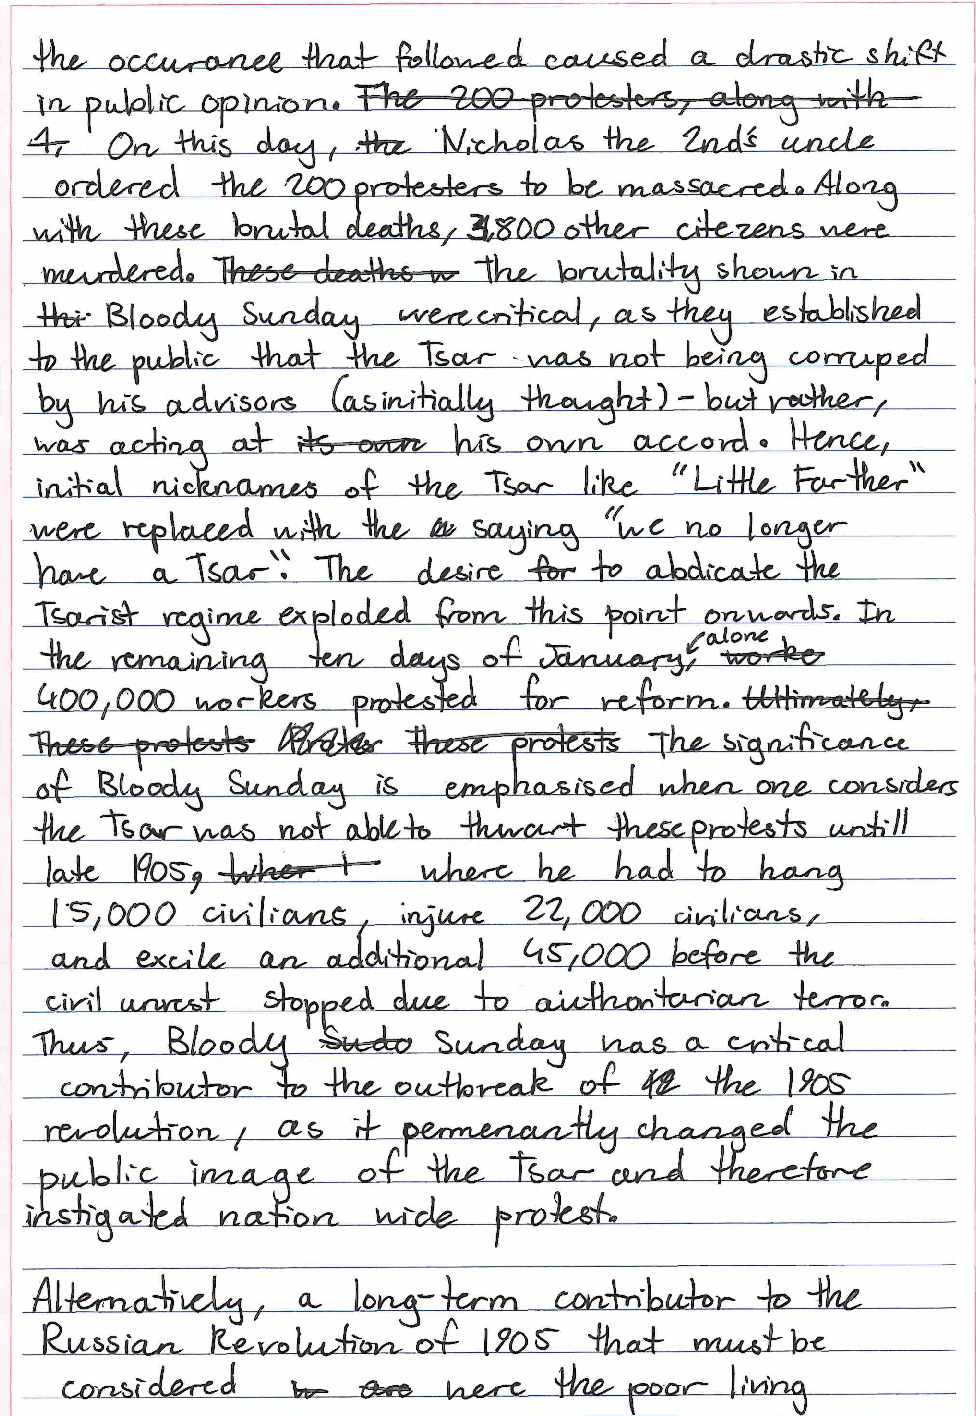 the occurance that followed caused a drastic shift
in public opinion. The 200 protesters, along with
4, On this day, the Nicholas the 2nd's uncle
ordered the 200 protesters to be massacred. Along
with these brutal deaths, 3,800 other citezens were
meurdered. These deaths w The brutality shown in
thi Bloody Sunday were critical, as they established
to the public that the Tsar was not being corruped
by his advisors (as initially thought) - but rather,
was acting at its own his own accord. Hence,
initial nicknames of the Tsar like "Little Farther"
were replaced with the saying "we no longer
have a Tsar". The desire for to abdicate the
Tsarist regime exploded from this point onwards. In
the remaining ten days of January, alone worke
400,000 workers protested for reform. Ultimately,
These protests these protests The significance
of Bloody Sunday is emphasised when one considers
the Tsar was not able to thwart these protests untill
late 1905, wher t where he had to hang
15,000 civilians, injure 22,000 civilians,
and excile an additional 45,000 before the
civil unrest stopped due to authoritarian terror.
Thus, Bloody Sudo Sunday was a critical
contributor to the outbreak of the 1905
revolution, as it permenantly changed the
public image of the Tsar and therefore
instigated nation wide protest.
Alternatively, a long-term contributor to the
Russian Revolution of 1905 that must be
considered w are were the poor living